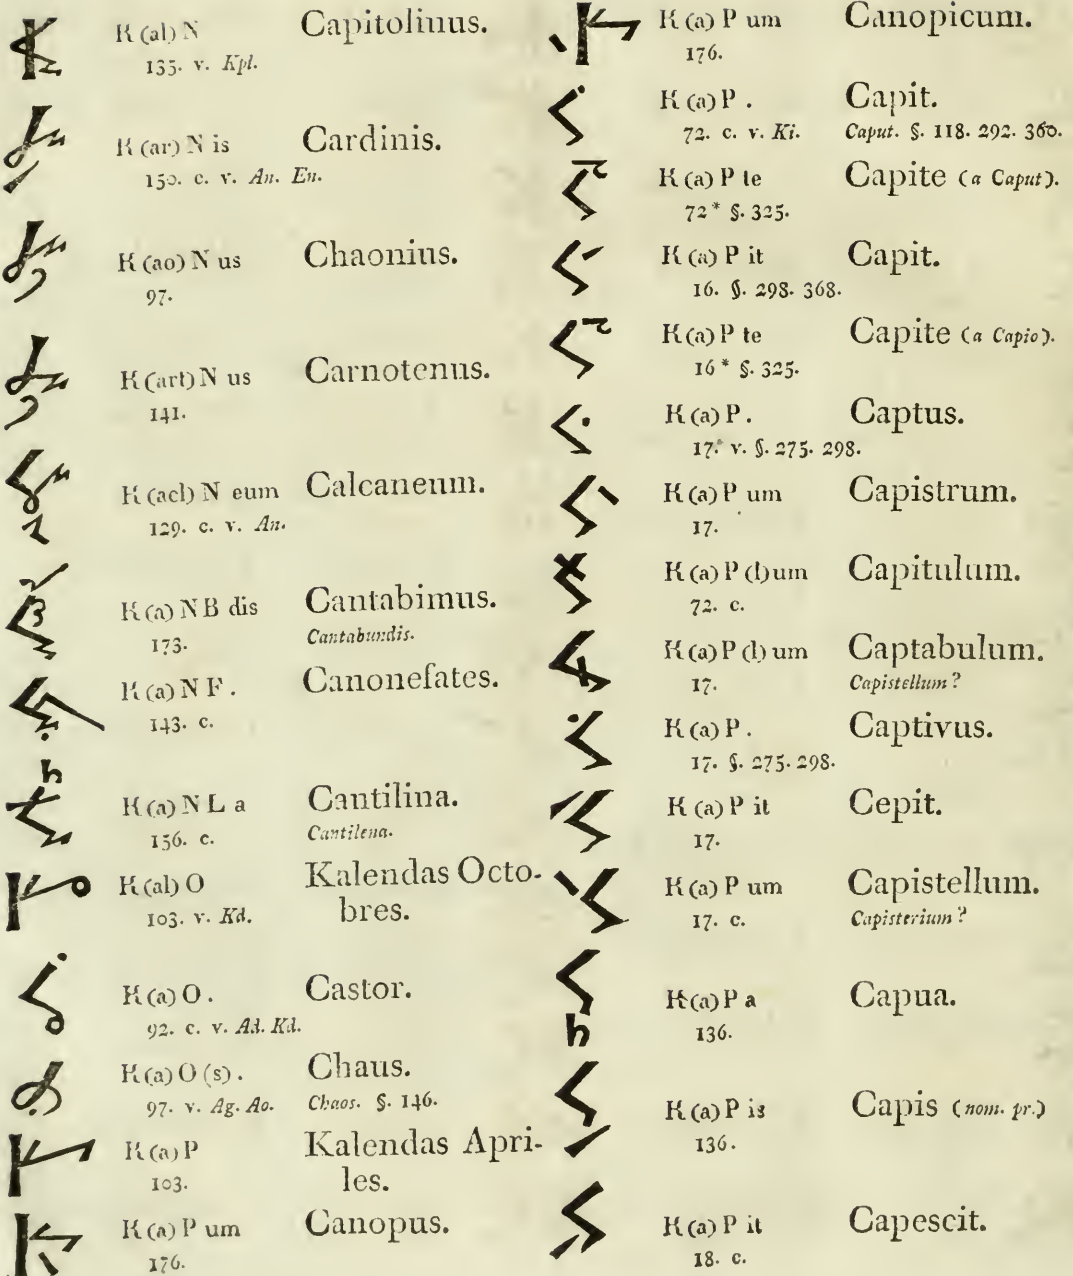 K (al) N Capitolinus.
135. v. Kpl.
K (ar) N is Cardinis.
150. c. v. An. En.
K (ao) N us Chaonius.
97.
K (art) N us Carnotenus.
141.
K (acl) N eum Calcaneum.
129. c. v. An.
K (a) N B dis Cantabimus.
173. Cantabundis.
K (a) N F . Canonefates.
143. c.
K (a) N L a Cantilina.
156. c. Cantilena.
K (al) O Kalendas Octo-
103. v. Kd. bres.
K (a) O . Castor.
92. c. v. Ad. Kd.
K (a) O (s) . Chaus.
97. v. Ag. Ao. Chaos. §. 146.
K (a) P Kalendas Apri-
103. les.
K (a) P um Canopus.
176.
K (a) P um Canopicum.
176.
K (a) P . Capit.
72. c. v. Ki. Caput. §. 118. 292. 360.
K (a) P te Capite (a Caput).
72* §. 325.
K (a) P it Capit.
16. §. 298. 368.
K (a) P te Capite (a Capio).
16* §. 325.
K (a) P . Captus.
17.* v. §. 275. 298.
K (a) P um Capistrum.
17.
K (a) P (l) um Capitulum.
72. c.
K (a) P (l) um Captabulum.
17. Capistellum?
K (a) P . Captivus.
17. §. 275. 298.
K (a) P it Cepit.
17.
K (a) P um Capistellum.
17. c. Capisterium?
K (a) P a Capua.
136.
K (a) P is Capis (nom. pr.)
136.
K (a) P it Capescit.
18. c.